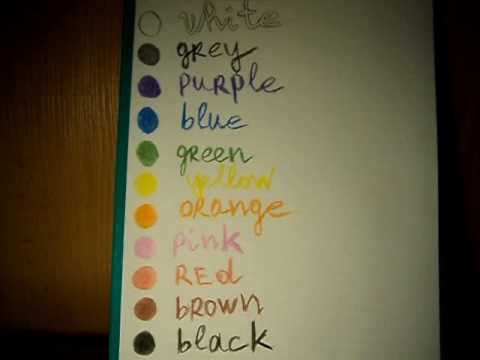 white
grey
purple
blue
green
yellow
orange
pink
Red
brown
black